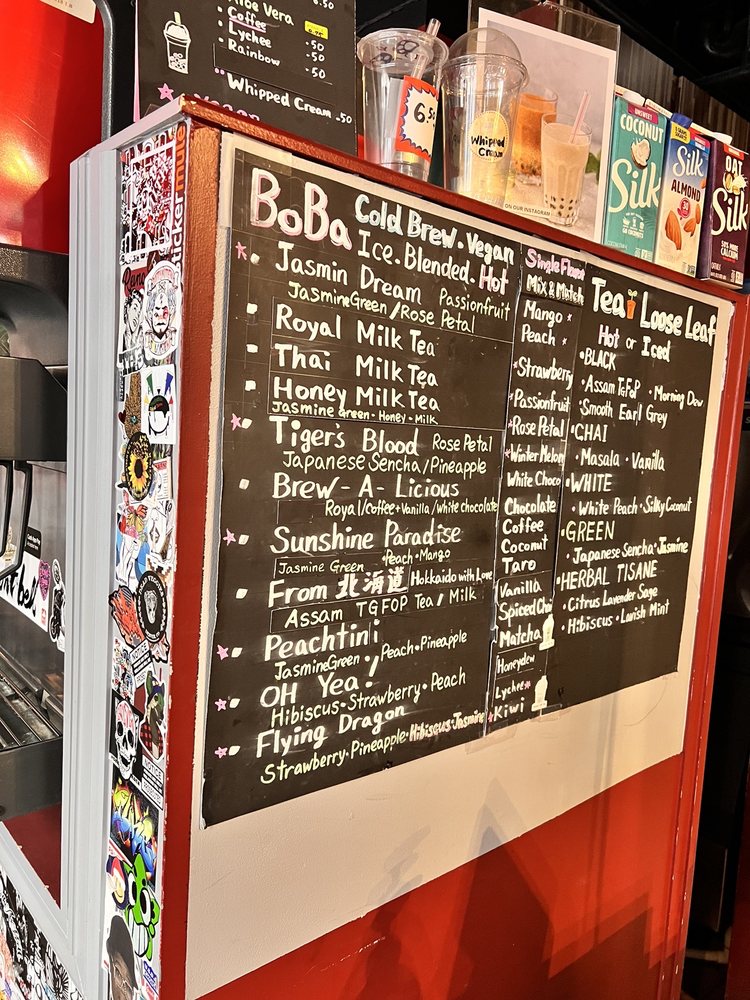 Aloe Vera .50
Coffee
Lychee .50
Rainbow .50
Whipped Cream .50
6.50
Whipped Cream
ON OUR INSTAGRAM
UNSWEET
COCONUT
Silk
Silk
ALMOND
OAT
Silk
sticker
BoBa Cold Brew. Vegan
Ice. Blended. Hot
Jasmin Dream Passionfruit
Jasmine Green / Rose Petal
Royal Milk Tea
Thai Milk Tea
Honey Milk Tea
Jasmine Green - Honey - Milk
Tiger's Blood Rose Petal
Japanese Sencha / Pineapple
Brew-A-Licious
Royal/Coffee+Vanilla/White chocolate
Sunshine Paradise
Jasmine Green Peach-Mango
From 北海道 Hokkaido with Love
Assam TGFOP Tea / Milk
Peachtini
Jasmine Green Peach-Pineapple
OH Yea!
Hibiscus-Strawberry-Peach
Flying Dragon
Strawberry-Pineapple-Hibiscus-Jasmine
Single Flavor
Mix & Match
Mango
Peach
Strawberry
Passionfruit
Rose Petal
Winter Melon
White Choco
Chocolate
Coffee
Coconut
Taro
Vanilla
Spiced Chai
Matcha
Honeydew
Lychee
Kiwi
Tea Loose Leaf
Hot or Iced
BLACK
Assam TGFoP · Morning Dew
Smooth Earl Grey
CHAI
Masala · Vanilla
WHITE
White Peach · Silky Coconut
GREEN
Japanese Sencha · Jasmine
HERBAL TISANE
Citrus Lavender Sage
Hibiscus · Lavish Mint